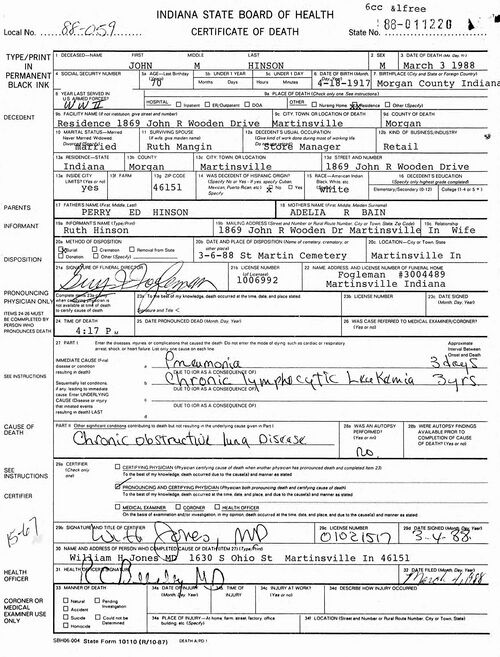 6cc &1free
INDIANA STATE BOARD OF HEALTH
Local No. 88-059 CERTIFICATE OF DEATH 88-011220
TYPE/PRINT IN PERMANENT BLACK INK
1 DECEASED—NAME FIRST MIDDLE LAST 2 SEX 3 DATE OF DEATH (Mo. Day, Yr.)
JOHN M HINSON M March 3 1988
4 SOCIAL SECURITY NUMBER 5a AGE—Last Birthday 5b UNDER 1 YEAR 5c UNDER 1 DAY 6 DATE OF BIRTH 7 BIRTHPLACE (City and State or Foreign Country)
70 Months Days Hours Minutes 4-18-1917 Morgan County Indiana
8 YEAR LAST SERVED IN U.S. ARMED FORCES? 9a PLACE OF DEATH (Check only one. See instructions)
WW II HOSPITAL: Inpatient ER/Outpatient DOA OTHER: Nursing Home Residence Other (Specify)
DECEDENT
9b FACILITY NAME (If not institution, give street and number) 9c CITY, TOWN OR LOCATION OF DEATH 9d COUNTY OF DEATH
Residence 1869 John R Wooden Drive Martinsville Morgan
10 MARITAL STATUS—Married Never Married Widowed Divorced (Specify) 11 SURVIVING SPOUSE (If wife, give maiden name) 12a DECEDENT'S USUAL OCCUPATION 12b KIND OF BUSINESS/INDUSTRY
married Ruth Mangin Store Manager Retail
13a RESIDENCE—STATE 13b COUNTY 13c CITY TOWN OR LOCATION 13d STREET AND NUMBER
Indiana Morgan Martinsville 1869 John R Wooden Drive
13e INSIDE CITY LIMITS? (Yes or no) 13f FARM 13g ZIP CODE 14 WAS DECEDENT OF HISPANIC ORIGIN? 15 RACE—American Indian Black, White, etc. 16 DECEDENT'S EDUCATION (Specify only highest grade completed)
yes 46151 No Yes White Elementary/Secondary (0-12) College (1-4 or 5+)
PARENTS
17 FATHER'S NAME (First, Middle, Last) 18 MOTHER'S NAME (First, Middle, Maiden Surname)
PERRY ED HINSON ADELIA R BAIN
INFORMANT
19a INFORMANT'S NAME (Type/Print) 19b MAILING ADDRESS (Street and Number or Rural Route Number, City or Town, State, Zip Code) 19c Relationship
Ruth Hinson 1869 John R Wooden Dr Martinsville In Wife
DISPOSITION
20a METHOD OF DISPOSITION 20b DATE AND PLACE OF DISPOSITION (Name of cemetery, crematory, or other place) 20c LOCATION—City or Town, State
Burial Cremation Removal from State Donation Other (Specify) 3-6-88 St Martin Cemetery Martinsville In
21a SIGNATURE OF FUNERAL DIRECTOR 21b LICENSE NUMBER (of Licensee) 22 NAME, ADDRESS, AND LICENSE NUMBER OF FUNERAL HOME
1006992 Pogleman #3004489
Martinsville Indiana
PRONOUNCING PHYSICIAN ONLY
Complete items 23a-c only when certifying physician is not available at time of death to certify cause of death 23a To the best of my knowledge, death occurred at the time, date, and place stated 23b LICENSE NUMBER 23c DATE SIGNED (Month, Day, Year)
Signature and Title
ITEMS 24-26 MUST BE COMPLETED BY PERSON WHO PRONOUNCES DEATH
24 TIME OF DEATH 25 DATE PRONOUNCED DEAD (Month, Day, Year) 26 WAS CASE REFERRED TO MEDICAL EXAMINER/CORONER? (Yes or no)
4:17 P M
27 PART I Enter the diseases, injuries or complications that caused the death. Do not enter the mode of dying, such as cardiac or respiratory arrest, shock, or heart failure. List only one cause on each line. Approximate Interval Between Onset and Death
SEE INSTRUCTIONS
IMMEDIATE CAUSE (Final disease or condition resulting in death) a Pneumonia 3 days
DUE TO (OR AS A CONSEQUENCE OF):
Sequentially list conditions, if any, leading to immediate cause. Enter UNDERLYING CAUSE (Disease or injury that initiated events resulting in death) LAST
b Chronic Lymphocytic Leukemia 3 yrs
DUE TO (OR AS A CONSEQUENCE OF):
c
DUE TO (OR AS A CONSEQUENCE OF):
d
CAUSE OF DEATH
PART II Other significant conditions contributing to death but not resulting in the underlying cause given in Part I 28a WAS AN AUTOPSY PERFORMED? (Yes or no) 28b WERE AUTOPSY FINDINGS AVAILABLE PRIOR TO COMPLETION OF CAUSE OF DEATH? (Yes or no)
Chronic obstructive lung Disease no
SEE INSTRUCTIONS
29a CERTIFIER (Check only one)
CERTIFYING PHYSICIAN (Physician certifying cause of death when another physician has pronounced death and completed Item 23)
To the best of my knowledge, death occurred due to the cause(s) and manner as stated
PRONOUNCING AND CERTIFYING PHYSICIAN (Physician both pronouncing death and certifying cause of death)
To the best of my knowledge, death occurred at the time, date, and place, and due to the cause(s) and manner as stated
CERTIFIER
MEDICAL EXAMINER CORONER HEALTH OFFICER
On the basis of examination and/or investigation, in my opinion, death occurred at the time, date, and place, and due to the cause(s) and manner as stated
15-67
29b SIGNATURE AND TITLE OF CERTIFIER 29c LICENSE NUMBER 29d DATE SIGNED (Month, Day, Year)
Jones, MD 01021517 3-4-88
30 NAME AND ADDRESS OF PERSON WHO COMPLETED CAUSE OF DEATH (ITEM 27) (Type/Print)
William H Jones MD 1630 S Ohio St Martinsville In 46151
HEALTH OFFICER
31 HEALTH OFFICER'S SIGNATURE 32 DATE FILED (Month, Day, Year)
MD March 4, 1988
CORONER OR MEDICAL EXAMINER USE ONLY
33 MANNER OF DEATH 34a DATE OF INJURY (Month, Day, Year) 34b TIME OF INJURY 34c INJURY AT WORK? (Yes or no) 34d DESCRIBE HOW INJURY OCCURRED
Natural Pending Investigation
Accident
Suicide Could not be Determined
Homicide
34e PLACE OF INJURY—At home, farm, street, factory, office building, etc. (Specify) 34f LOCATION (Street and Number or Rural Route Number, City or Town, State)
SBH06-004 State Form 10110 (R/10-87) DEATH A/PD 1